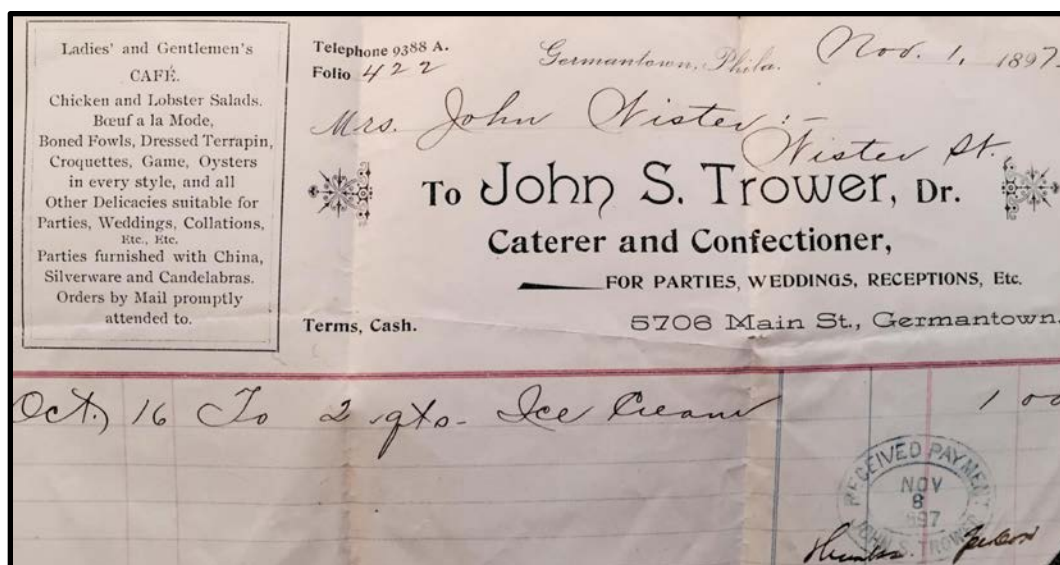 Ladies' and Gentlemen's
CAFÉ.
Chicken and Lobster Salads.
Bœuf a la Mode,
Boned Fowls, Dressed Terrapin,
Croquettes, Game, Oysters
in every style, and all
Other Delicacies suitable for
Parties, Weddings, Collations,
Etc., Etc.
Parties furnished with China,
Silverware and Candelabras.
Orders by Mail promptly
attended to.
Telephone 9388 A.
Folio 422
Germantown, Phila. Nov. 1, 1897.
Mrs. John Wister:-
Wister St.
To John S. Trower, Dr.
Caterer and Confectioner,
FOR PARTIES, WEDDINGS, RECEPTIONS, Etc.
Terms, Cash.
5706 Main St., Germantown.
Oct. 16 To 2 qts. Ice Cream 1 00
RECEIVED PAYMENT
NOV
8
897
JOHN S. TROWER